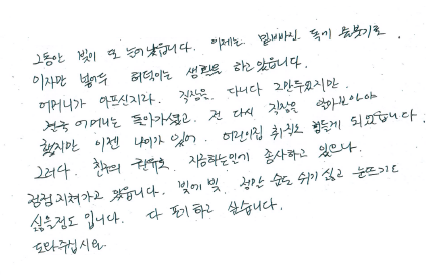 그동안 빚이 또 늘어났습니다. 이제는 밑빠진 독에 물붓기로.
이자만 벌어두 허덕이는 생활을 하고 있습니다.
어머니가 아프신지라. 직장을 다니다 그만두었지만.
결국 어머니는 돌아가셨고. 전 다시 직장을 알아보아야
했지만 이젠 나이가 있어. 어린이집 취직도 힘들게 되었습니다.
그러다. 친구의 권유로. 지금하는일에 종사하고 있으나.
점점 지쳐가고 있습니다. 빚에 빚. 정말 숨도 쉬기 싫고 눈뜨기도
싫을정도 입니다. 다 포기하고 싶습니다.
도와주십시요.